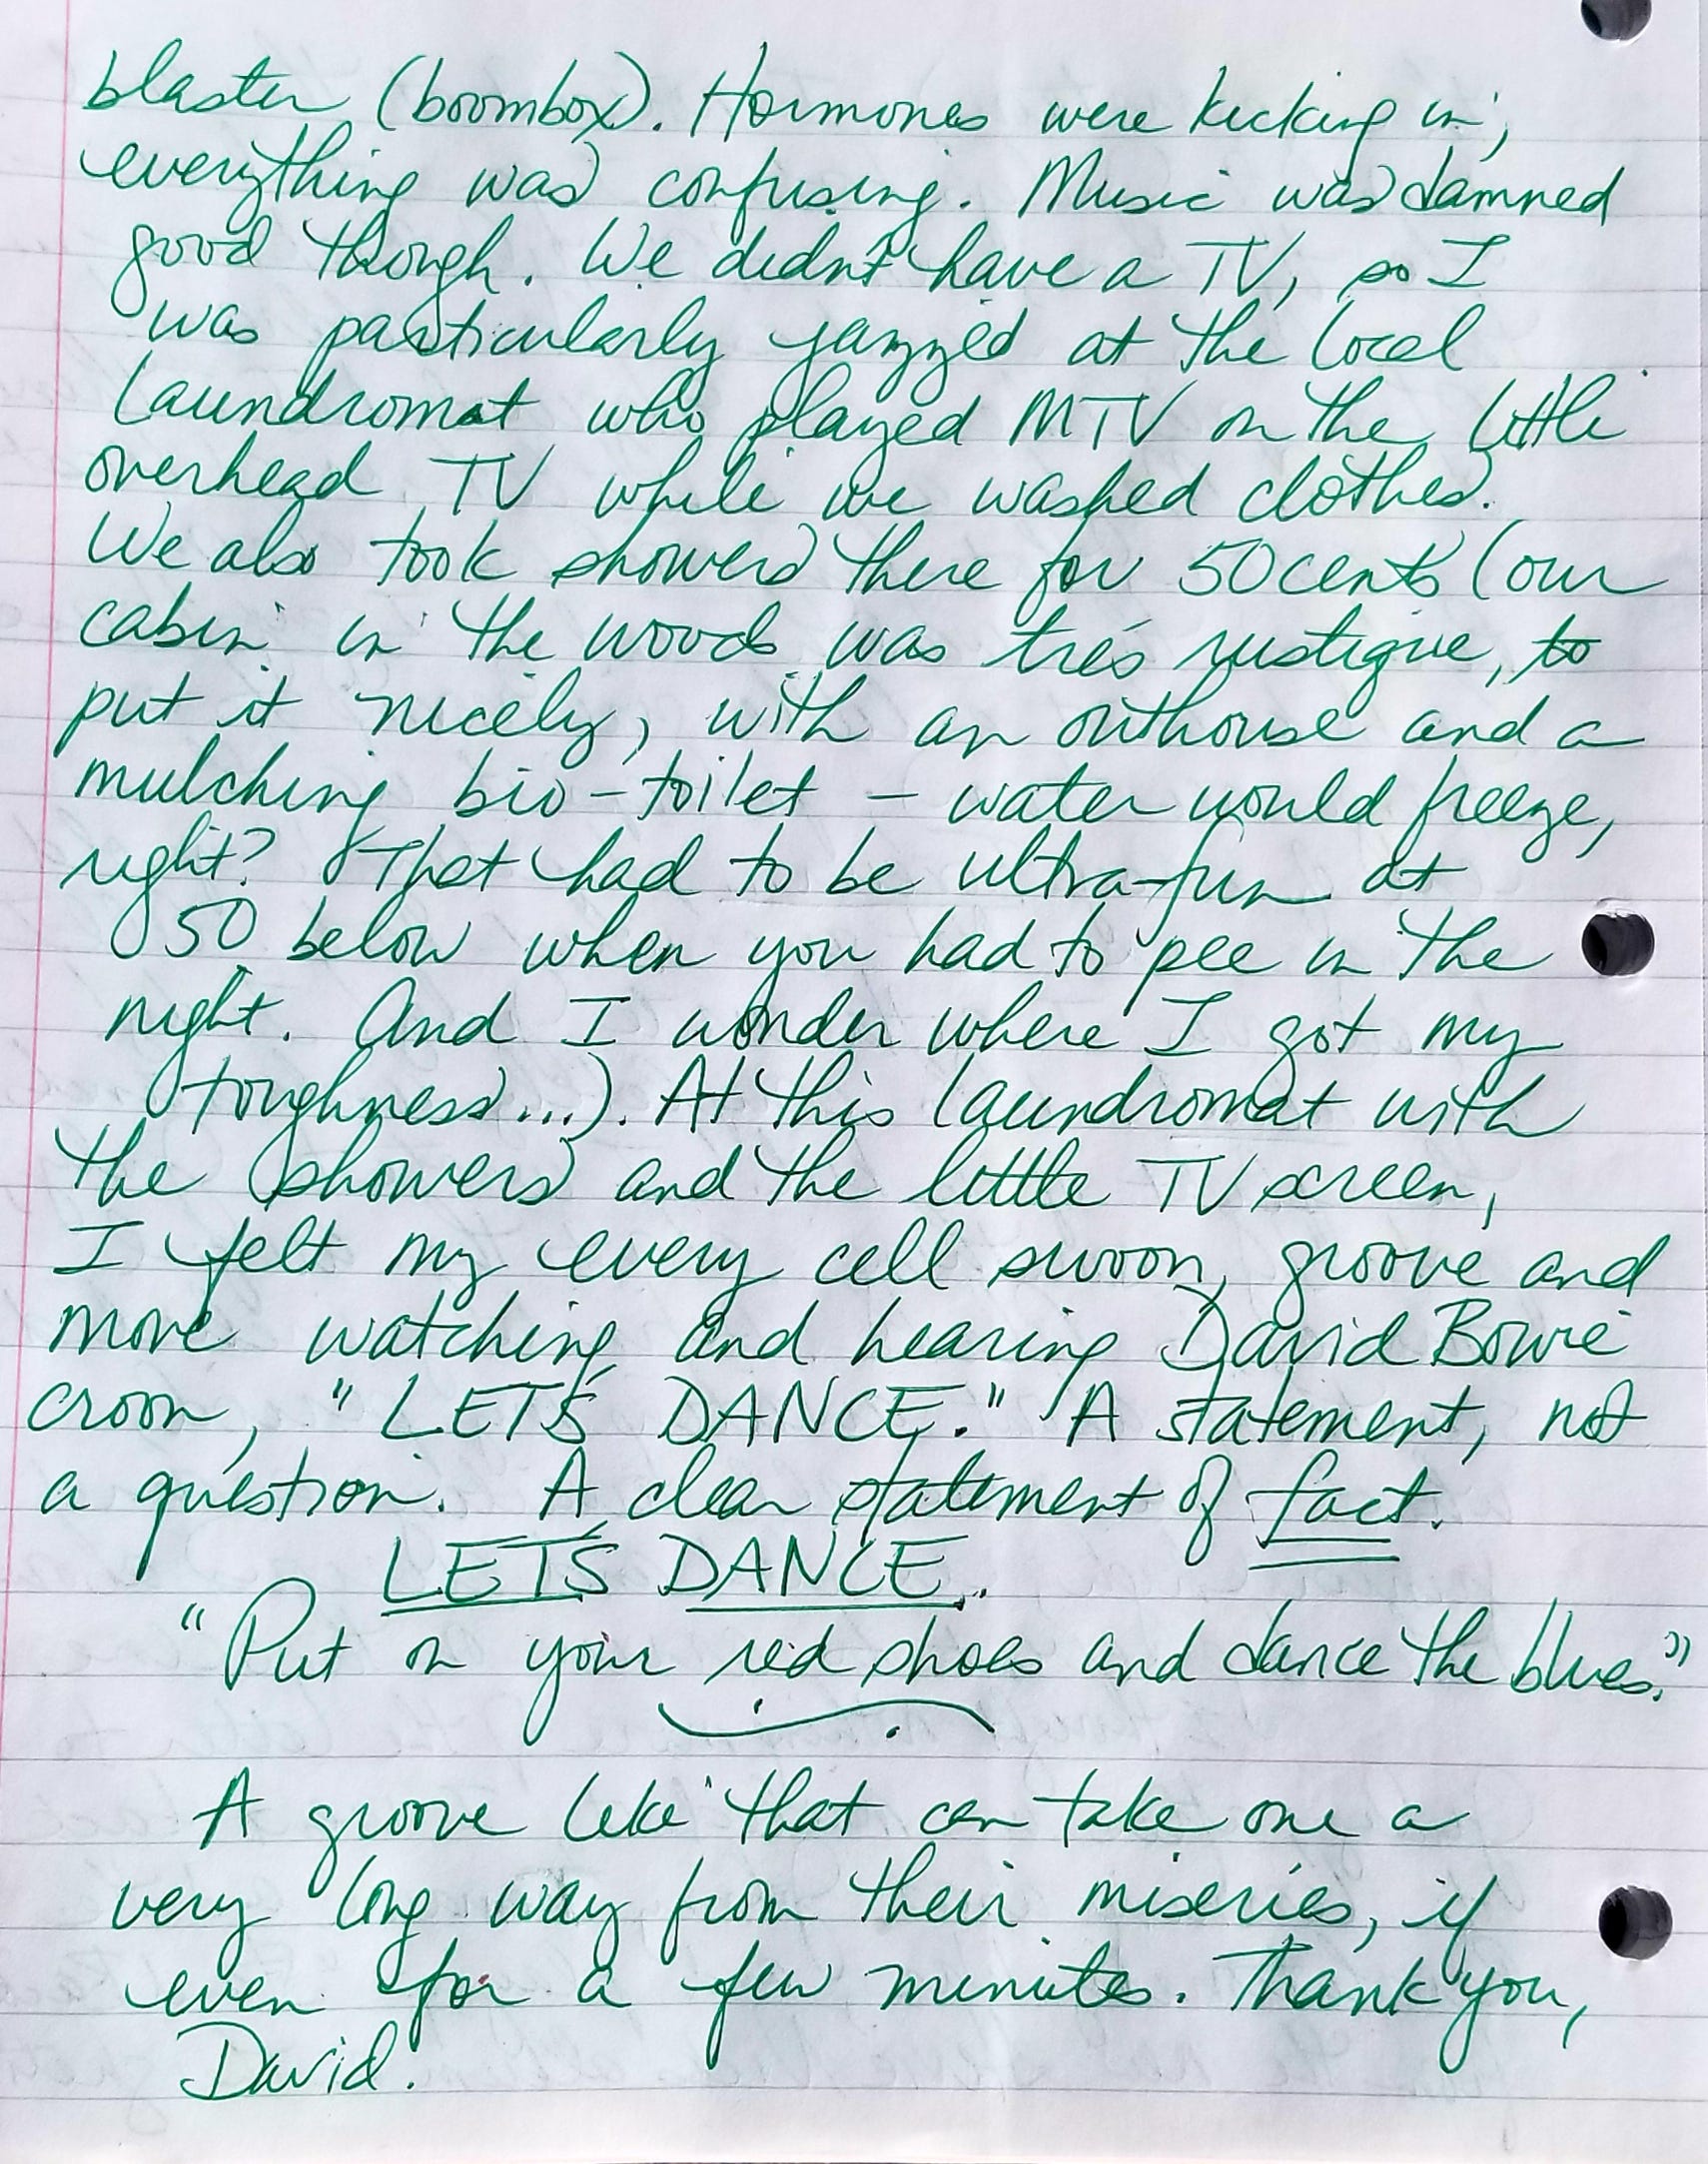 blaster (boombox). Hormones were kicking in,
everything was confusing. Music was damned
good though. We didn't have a TV, so I
was particularly jazzed at the local
laundromat who played MTV on the little
overhead TV while we washed clothes.
We also took showers there for 50 cents (our
cabin in the woods was trés rustique, to
put it nicely, with an outhouse and a
mulching bio-toilet – water would freeze,
right? That had to be ultra-fun at
50 below when you had to pee in the
night. And I wonder where I got my
toughness...). At this laundromat with
the showers and the little TV screen,
I felt my every cell swoon, groove and
move watching and hearing David Bowie
croon, "LET'S DANCE." A statement, not
a question. A clear statement of fact.
LET'S DANCE.
"Put on your red shoes and dance the blues."
A groove like that can take one a
very long way from their miseries, if
even for a few minutes. Thank you,
David.